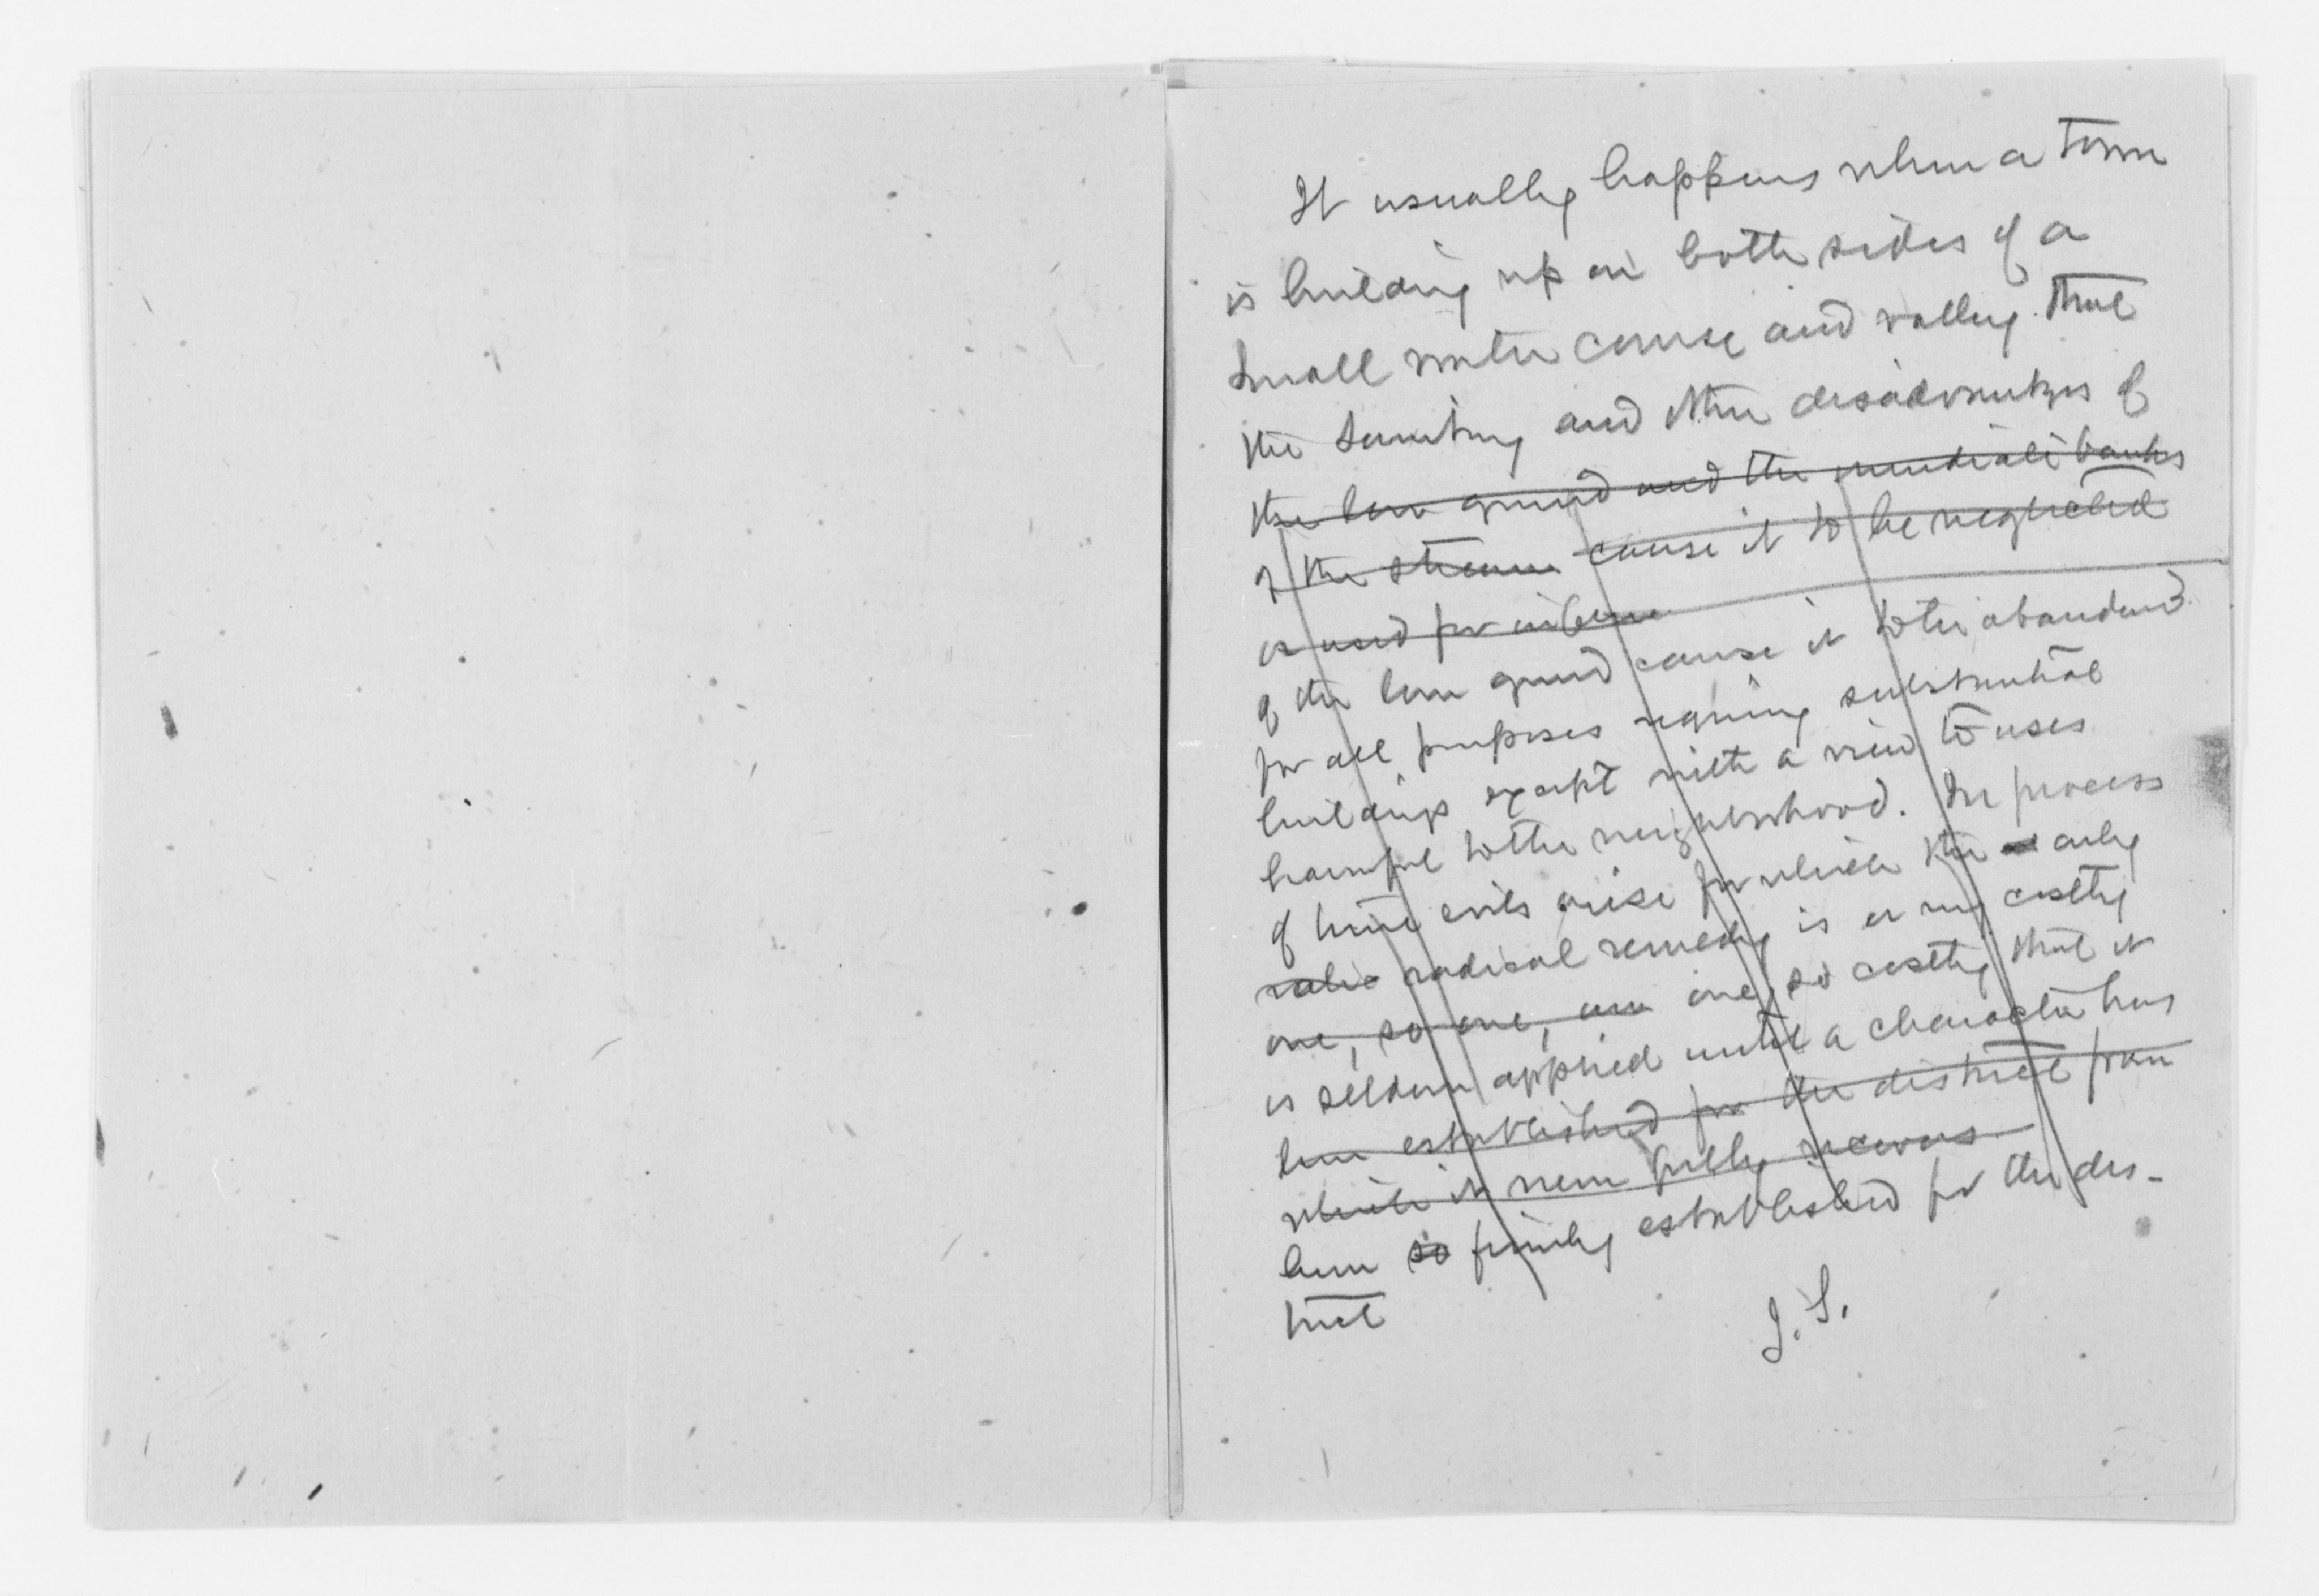 It usually happens when a town
is building up on both sides of a
small water course and valley that
the sanitary and other disadvantages of
the low ground and the immediate banks
of the stream cause it to be neglected
or used for
of the low ground cause it to be abandoned
for all purposes requiring substantial
buildings except with a view to uses
harmful to the neighborhood. In process
of time evils arise for which the only
radic radical remedy is a very costly
one, so one, one so costly that it
is seldom applied until a character has
been established for the district from
which it never fully recovers
been so firmly established for the dis-
trict
J. S.